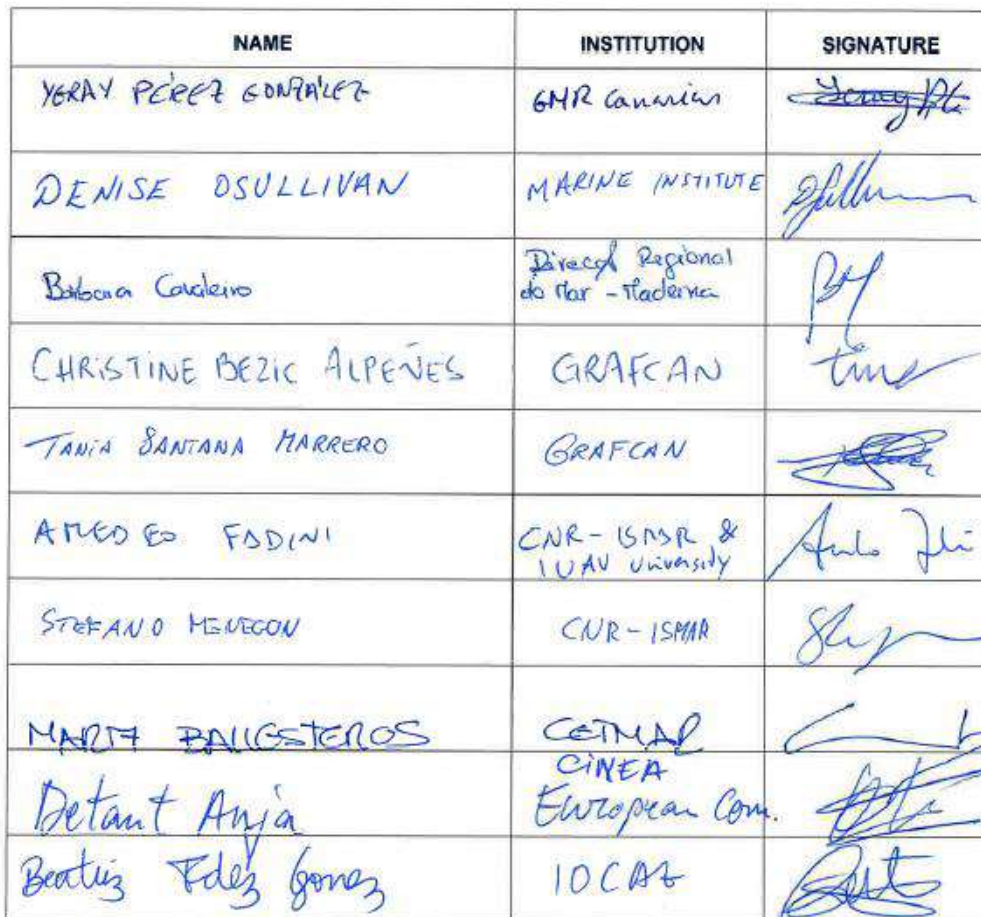 NAME INSTITUTION SIGNATURE
YERAY PÉREZ GONZÁLEZ GMR Canarias
DENISE OSULLIVAN MARINE INSTITUTE
Bárbara Cavaleiro Direcç Regional
do Mar - Madeira
CHRISTINE BEZIC ALPEÑES GRAFCAN
TANIA SANTANA MARRERO GRAFCAN
AMEDEO FADINI CNR-ISMAR &
IUAV University
STEFANO MENEGON CNR-ISMAR
MARTA BALLESTEROS CETMAR
CINEA
Detant Anja European Com.
Beatriz Fdez Gonez IOCAG